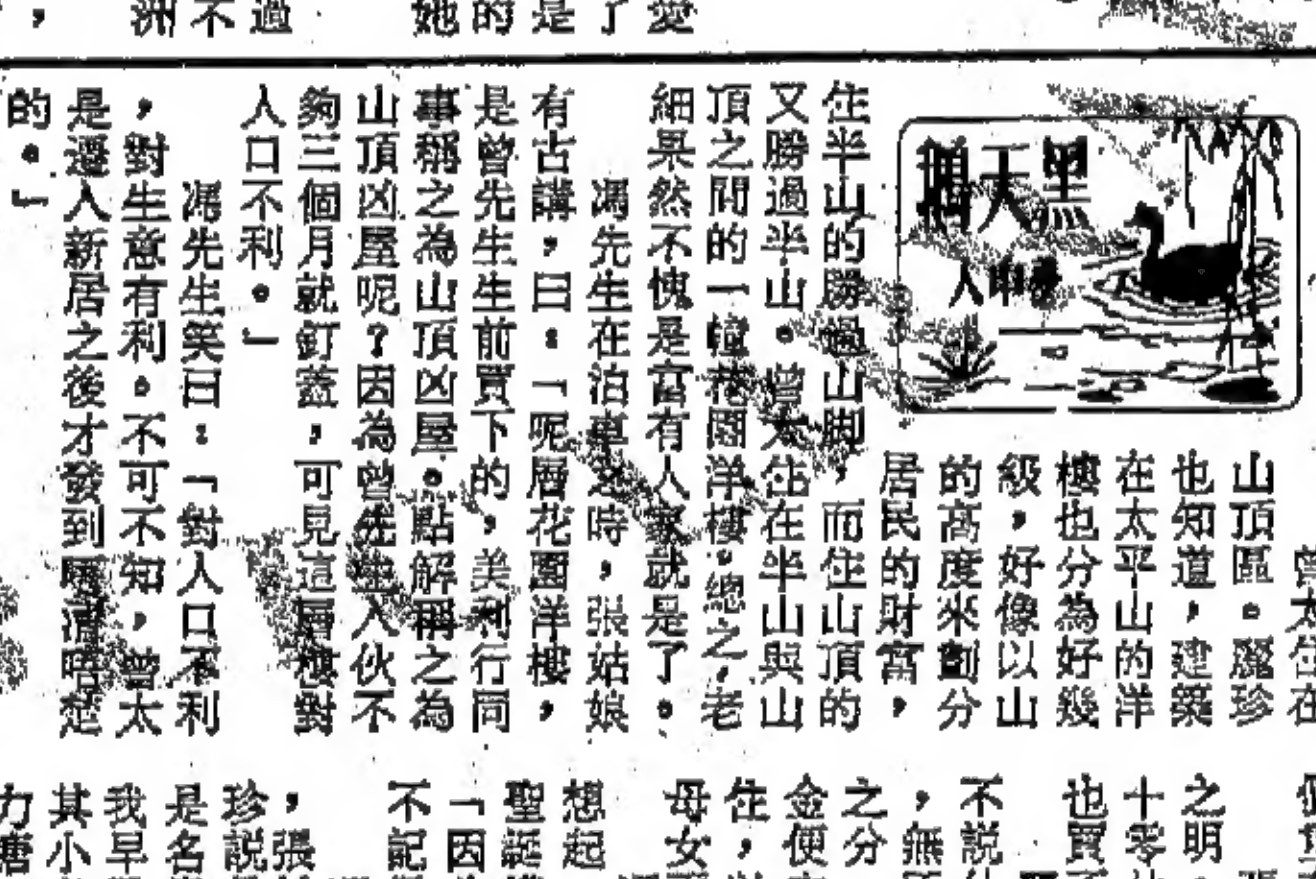 愛
了
是
的
她
過
不
洲
,
黑天鵝
人
曾太住在
山頂區。麗珍
也知道,建築
在太平山的洋
樓也分為好幾
級,好像以山
的高度來劃分
居民的財富,
住半山的勝過山脚,而住山頂的
又勝過半山。曾太住在半山與山
頂之間的一幢花園洋樓。總之,老
細果然不愧是富有人家就是了。
馮先生在泊車之時,張姑娘
有古講,曰:「呢層花園洋樓,
是曾先生生前買下的,美利行同
事稱之為山頂凶屋。點解稱之為
山頂凶屋呢?因為曾先生入伙不
夠三個月就釘蓋,可見這層樓對
人口不利。」
馮先生笑曰:「對人口不利
,對生意有利。不可不知,曾太
是遷入新居之後才發到唔清唔楚
的。」
之明
十零
也買
不說
,無
之分
金便
住,
母女
想起
聖誕
「因
不記
,張
珍說
是名
我早
其小
力